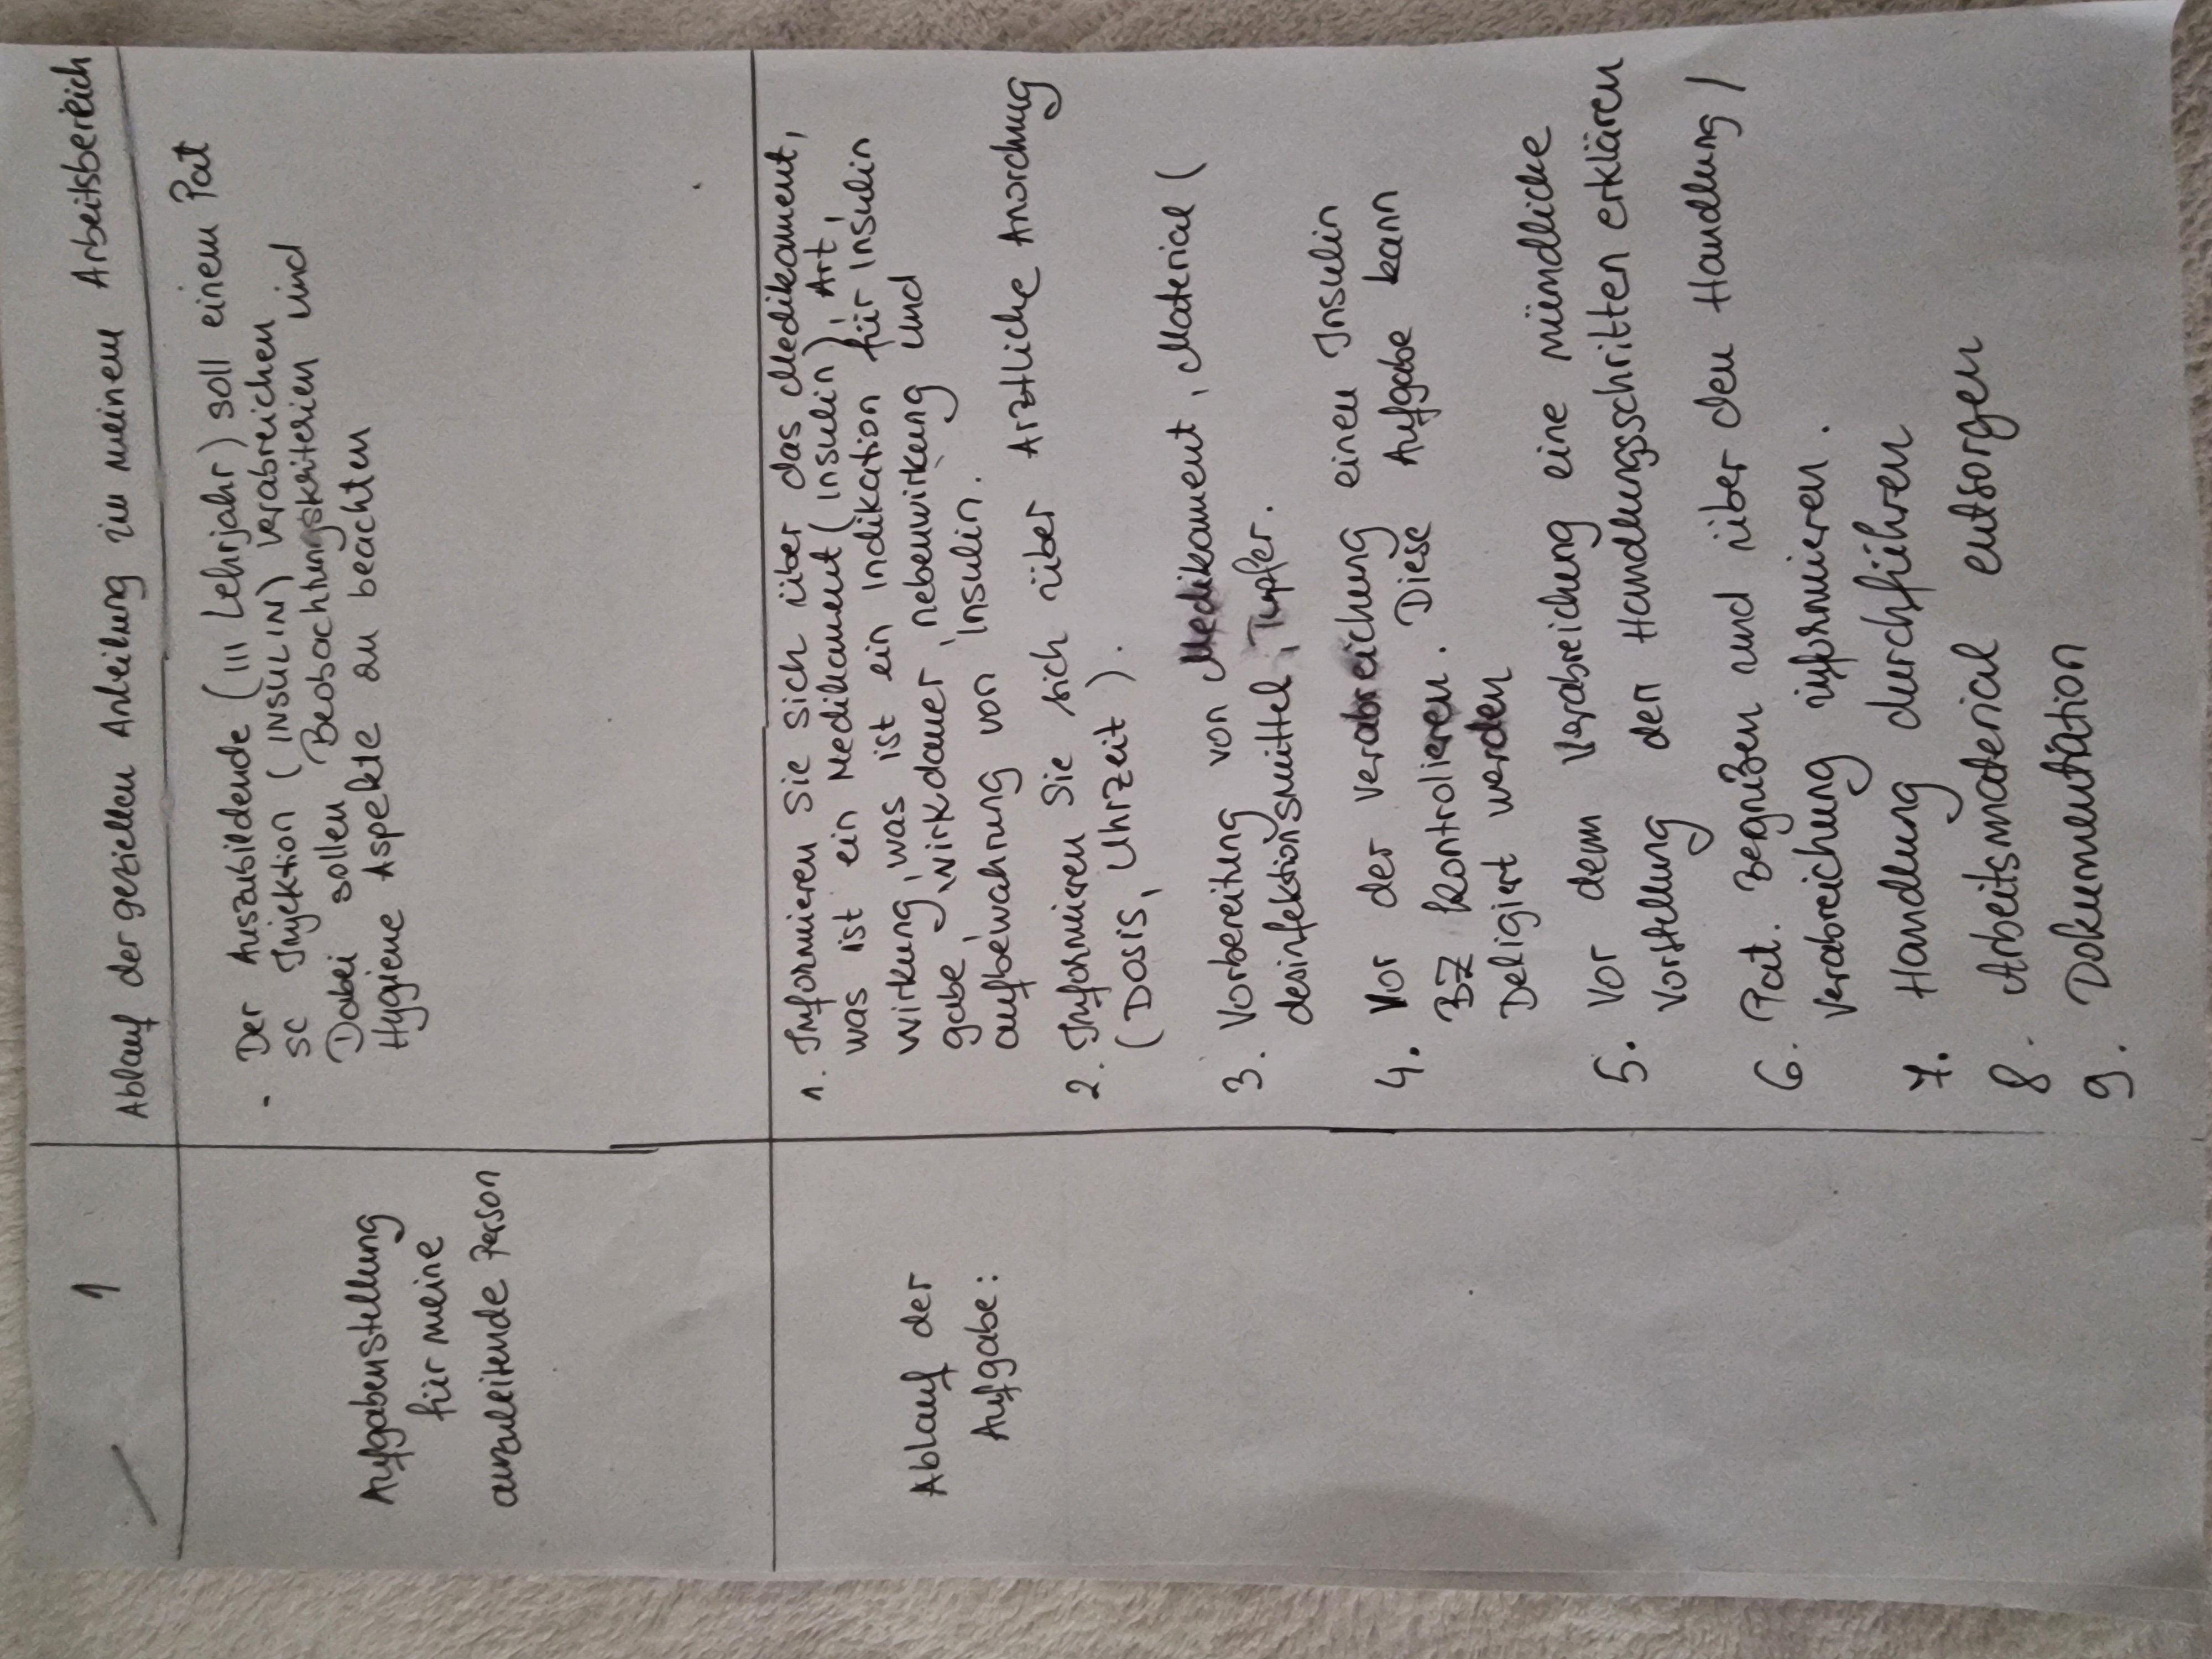 1
Ablauf der gezielten Anleitung in meinem Arbeitsbereich
Aufgabenstellung
für meine
anzuleitende Person
- Der Auszubildende (III Lehrjahr) soll einem Pat
sc Injektion (INSULIN) verabreichen
Dabei sollen Beobachtungskriterien und
Hygiene Aspekte zu beachten
Ablauf der
Aufgabe:
1. Informieren Sie sich über das Medikament,
was ist ein Medikament (Insulin), Art,
wirkung, was ist ein Indikation für Insulin
gabe, wirkdauer, nebenwirkung und
aufbewahrung von Insulin.
2. Informieren Sie sich über Arztliche Anordnung
(Dosis, Uhrzeit).
3. Vorbereitung von Medikament, Material (
desinfektionsmittel, Tupfer.
4. Vor der verabreichung einen Insulin
BZ kontrolieren. Diese Aufgabe kann
Deligiert werden
5. Vor dem Verabreichung eine mündliche
Vorstellung der Handlungsschritten erklären
6. Pat. Begrüßen und über den Handlung /
Verabreichung informieren.
7. Handlung durchführen
8. Arbeitsmaterial entsorgen
9. Dokumentation